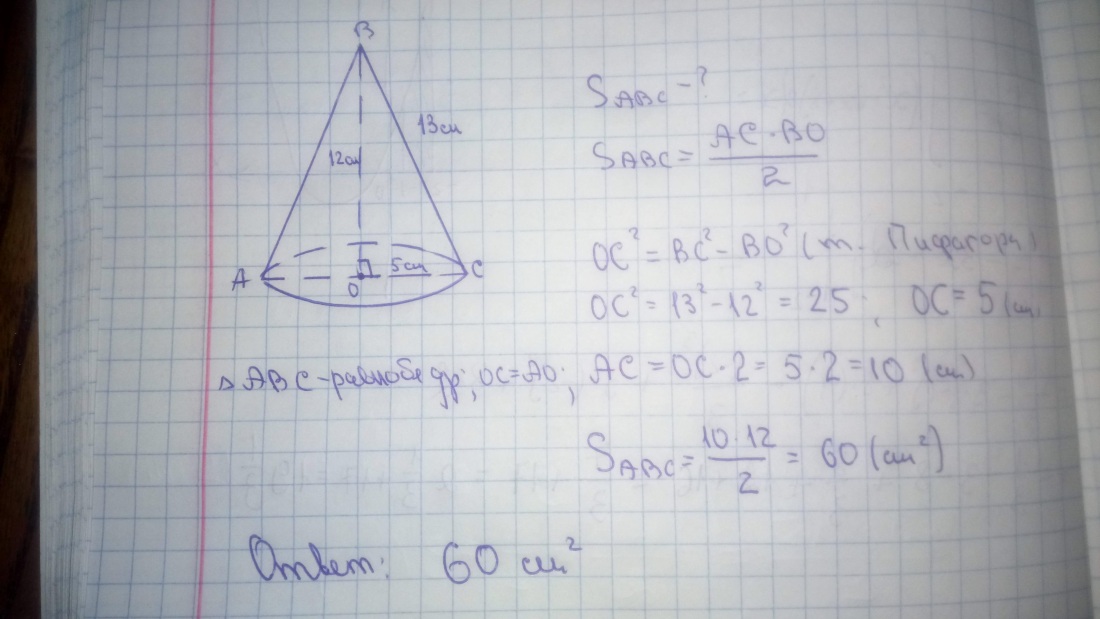 B
13см
12см
A
5см
C
O
S ABC - ?
S ABC = AC · BO / 2
OC² = BC² - BO² (т. Пифагора)
OC² = 13² - 12² = 25 ; OC = 5 (см)
△ ABC - равнобедр; OC = AO; AC = OC · 2 = 5 · 2 = 10 (см)
S ABC = 10 · 12 / 2 = 60 (см²)
Ответ: 60 см²